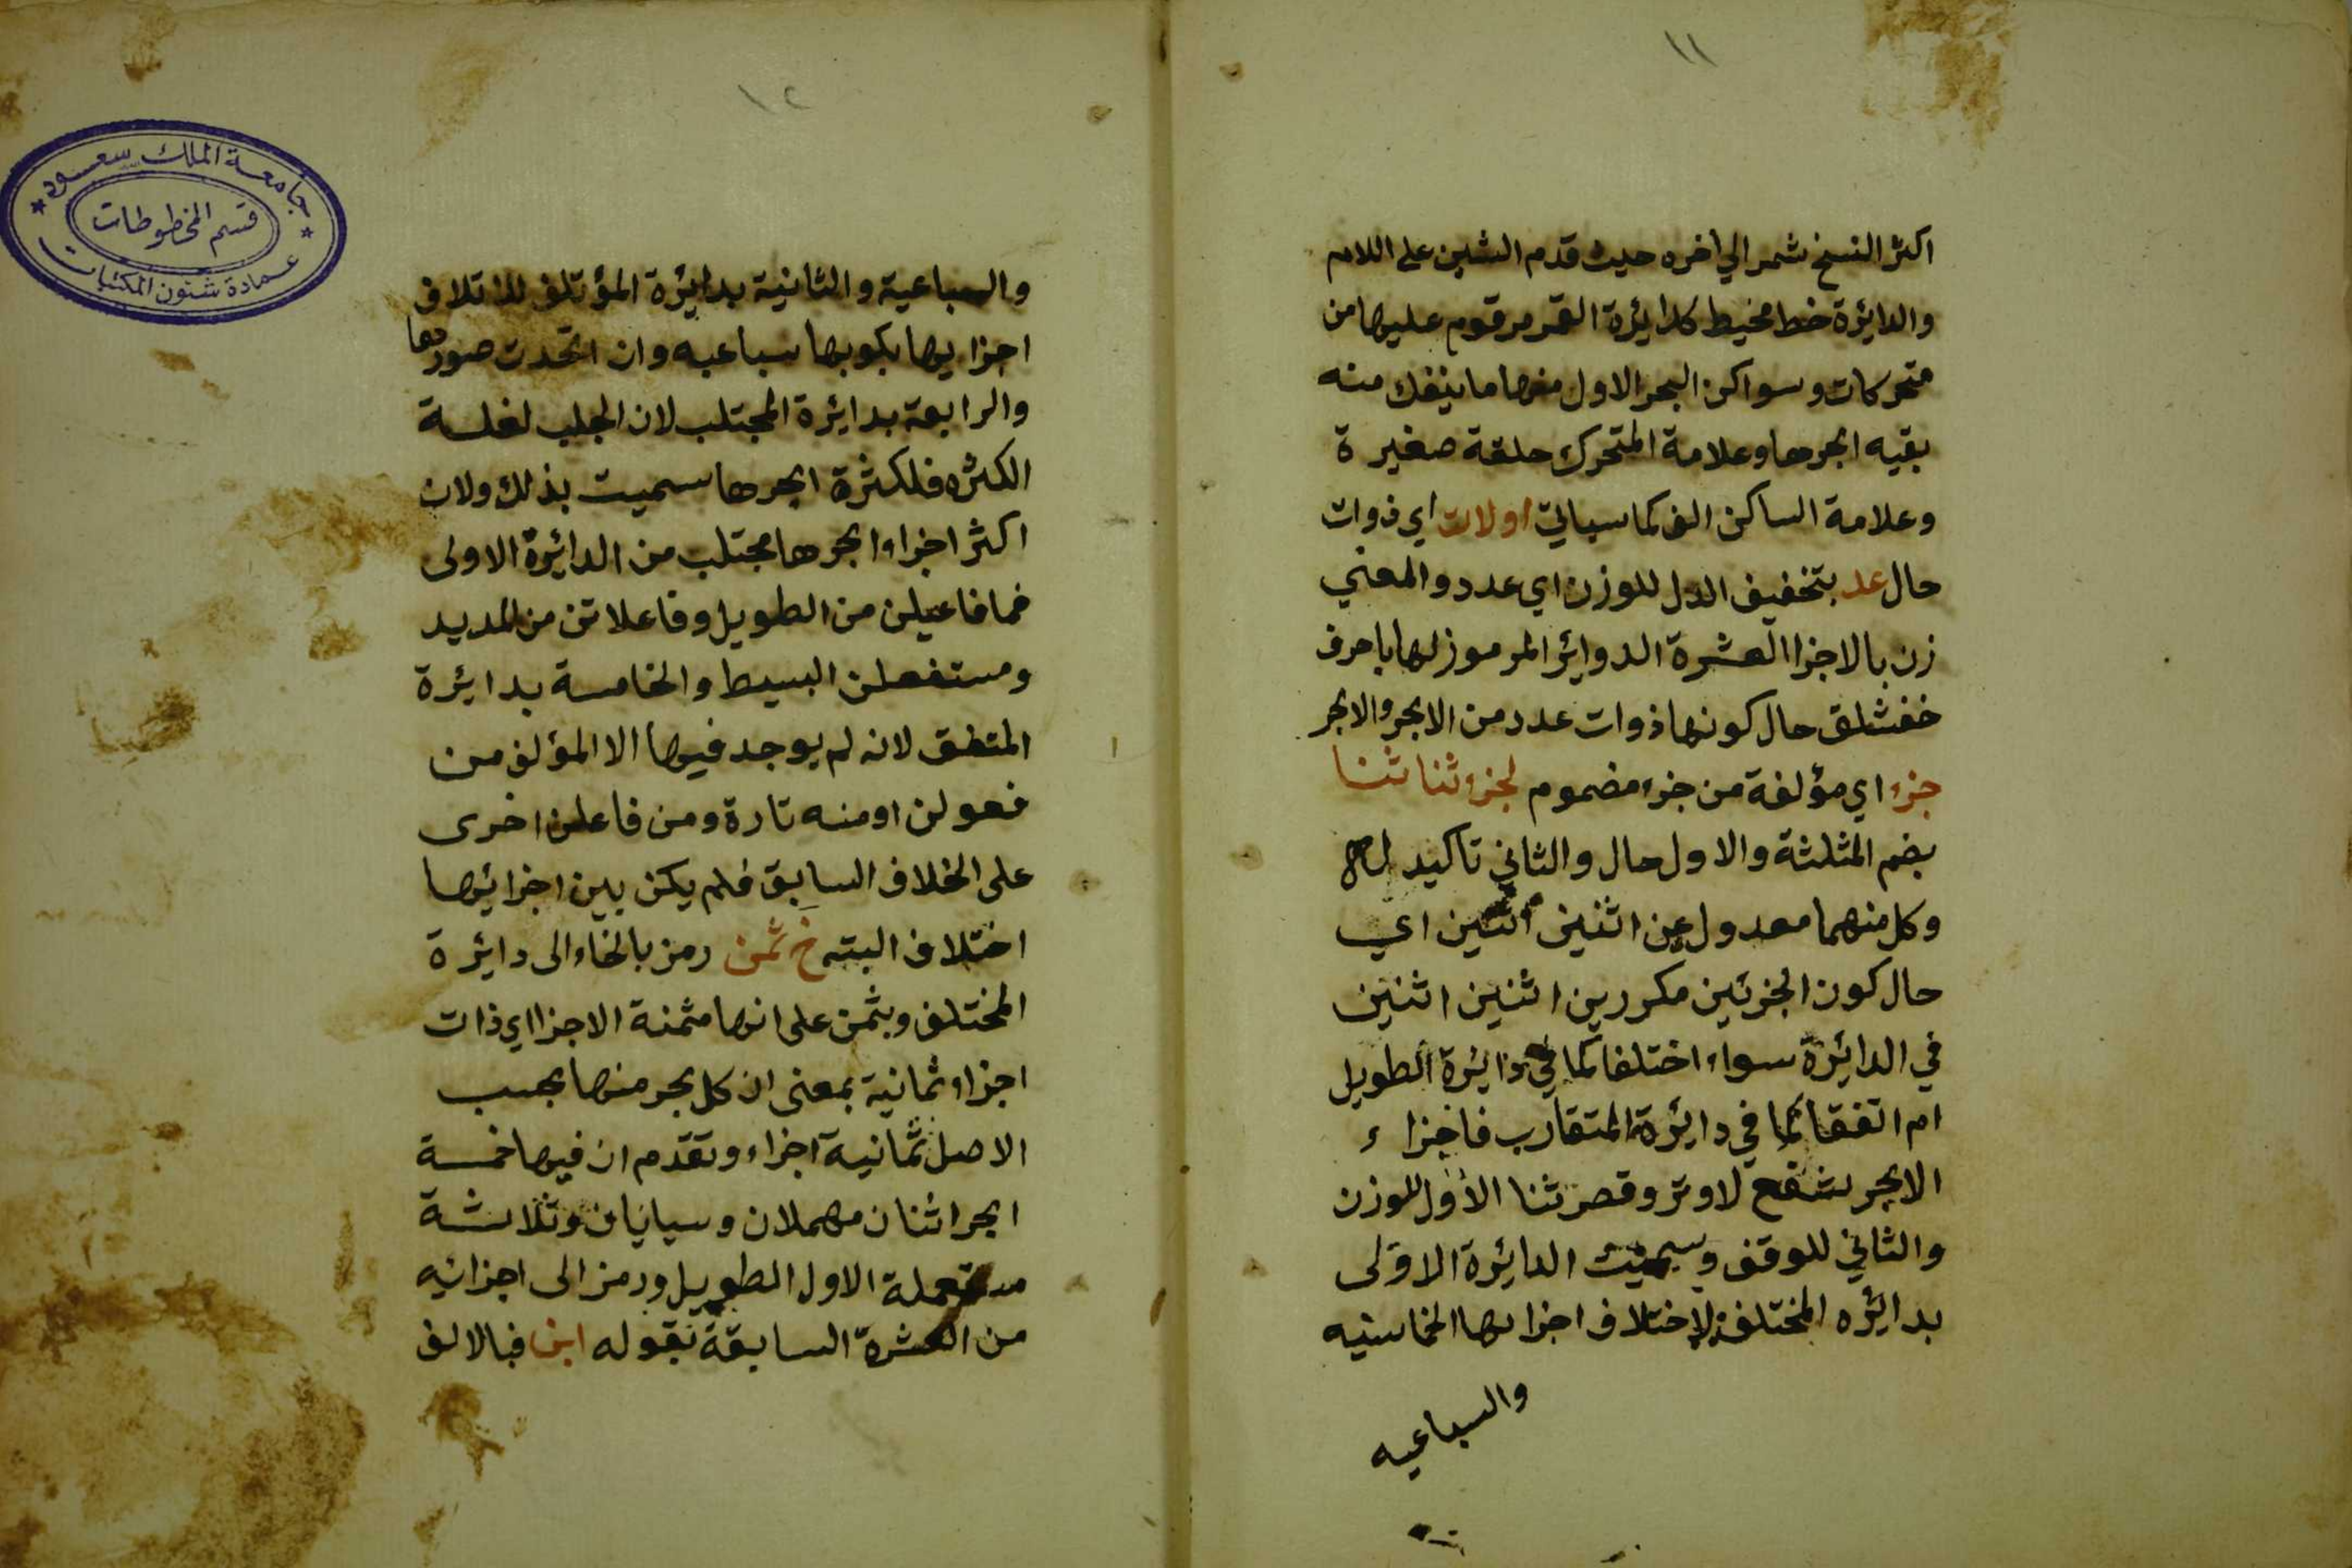 ١١
اكثر النسخ شمر الي اخره حيث قدم الشين على اللام
والدايرة خط محيط كدايرة القمر مرقوم عليها من
متحركات وسواكن البحر الاول منها ما ينفك منه
بقيه ابحرها وعلامة المتحرك حلقة صغيرة
وعلامة الساكن الف كما سياتي اولات اي ذوات
حال عد بتخفيف الدل للوزن اي عدد والمعني
زن بالاجزا العشرة الدوائر المرموز لها باحرف
خفشلق حال كونها ذوات عدد من الابحر والابحر
جزء اي مؤلفة من جزء مضموم لجزء ثنا ثنا
بضم المثلثة والاول حال والثاني تاكيد له
وكل منهما معدول عن اثنين اثنين اي
حال كون الجزئين مكررين اثنين اثنين
في الدائرة سواء اختلفا كما في دائرة الطويل
ام اتفقا كما في دايرة المتقارب فاجزاء
الابحر شفع لا وتر وقصر ثنا الاول للوزن
والثاني للوقف وسميت الدائرة الاولى
بدائره المختلف لاختلاف اجزايها الخماسيه
والسباعيه
١٢
والسباعية والثانية بدايرة المؤتلف لائتلاف
اجزايها بكونها سباعيه وان اتحدت صورها
والرابعة بدايرة المجتلب لان الجلب لغلسة
الكثره فلكثرة ابحرها سميت بذلك ولان
اكثر اجزاء ابحرها مجتلب من الدائرة الاولى
فمافاعيلن من الطويل وفاعلاتن من المديد
ومستفعلن البسيط والخامسة بدايرة
المتفق لانه لم يوجد فيها الا المؤلف من
فعولن او منه تارة ومن فاعلن اخرى
على الخلاف السابق فلم يكن بين اجزائها
اختلاف البته خ ثمن رمز بالخاء الى دايرة
المختلف وبثمن على انها مثمنة الاجزا اي ذات
اجزاء ثمانية بمعنى ان كل بحر منها بحسب
الاصل ثمانية اجزاء وتقدم ان فيها خمسة
ابحر اثنان مهملان وسياتيان وثلاثة
مستعملة الاول الطويل ورمز الى اجزائه
من العشرة السابقة بقوله ابن فبالالف
جامعة الملك سعود
قسم المخطوطات
عمادة شئون المكتبات